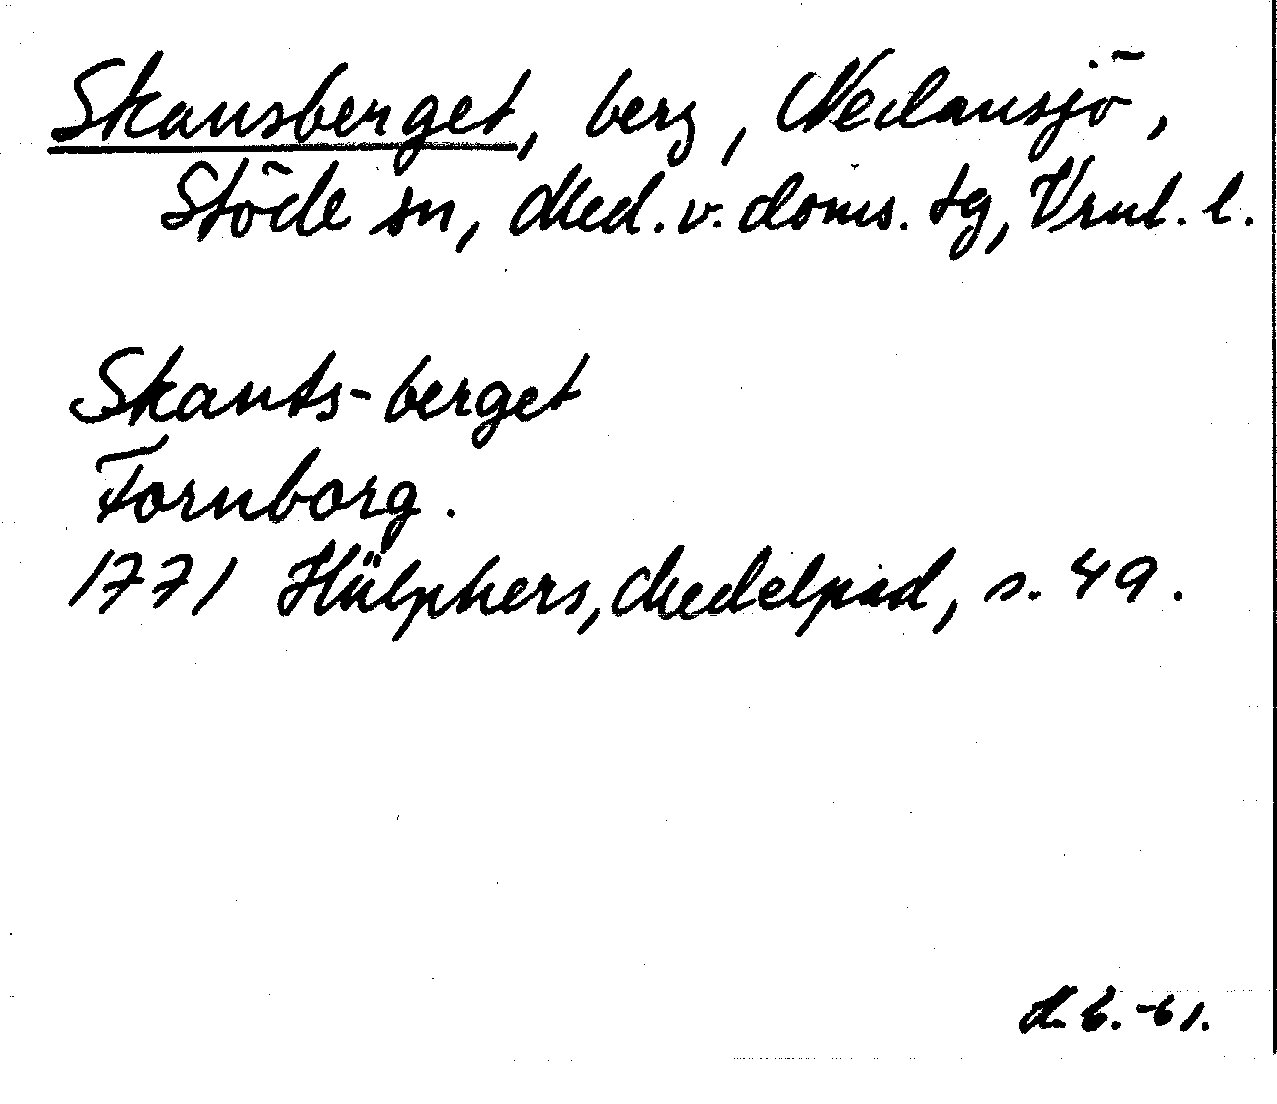 Skansberget, berg, Nedansjö,
Stöde sn, Med. v. doms. tg, Vrnl. l.
Skants-berget
Fornborg.
1771 Hülphers, Medelpad, s. 49.
M. B. -61.